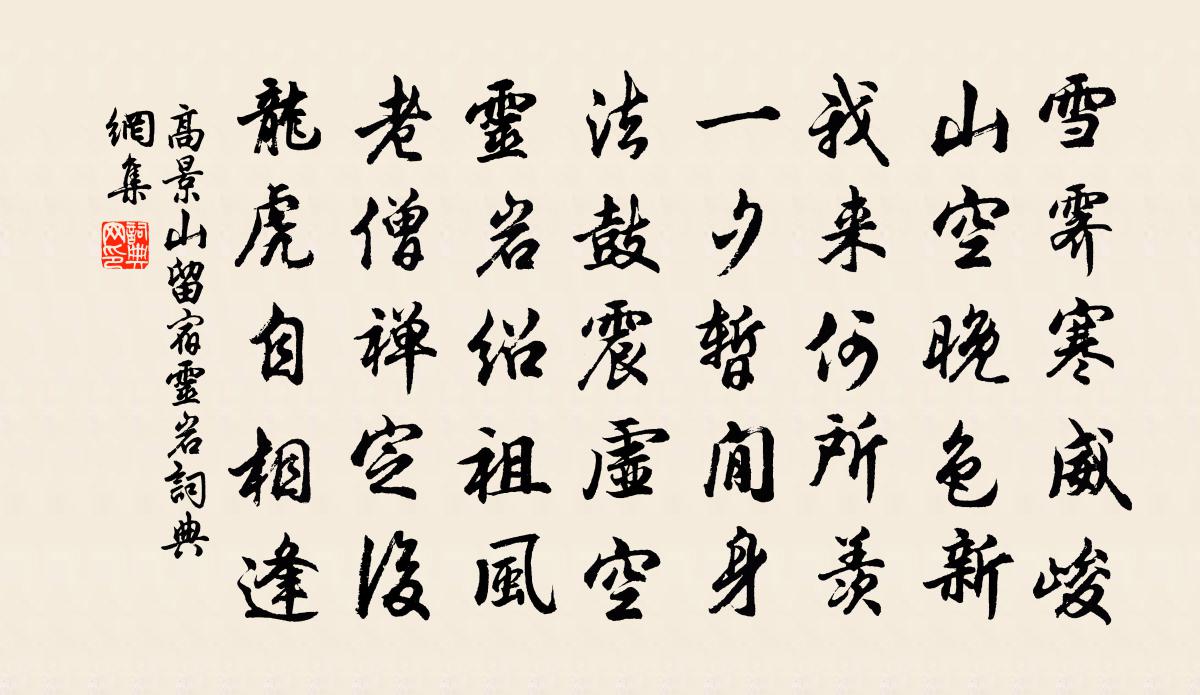 雪霽寒威峻
山空晚色新
我来何所羨
一夕暫閒身
法鼓震虛空
靈岩紹祖風
老僧禅定後
龍虎自相逢
高景山留宿靈岩詞典
網集
詞典
网印